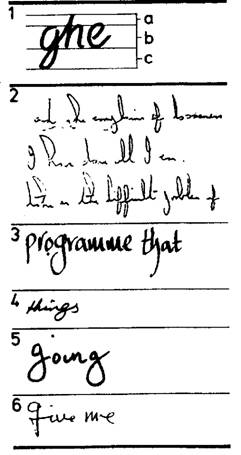 1
ghe
a
b
c
2
and the of
I have done all I can.
difficult problem of
3 programme that
4 things
5 going
6 give me